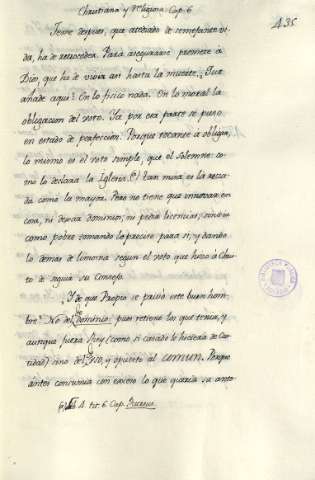 Christiana y Religiosa. Cap. 6
435
Teme despues, que atediado de semejante vi-
da, ha de retroceder. Para asegurarse promete a
Dios, que ha de vivir asi hasta la muerte. Que
añade aqui? En lo fisico nada. En lo moral la
obligacion del voto. Ya por esa parte se puso
en estado de perfeccion. Porque tocante a obligar,
lo mismo es el voto simple, que el solemne: co-
mo lo declara la Iglesia. El tan mira es la
como la mayor. Pero no tiene que innovar en
cosa, ni dexar dominios, ni pedir licencias; sino vivir
como pobre tomando lo preciso para si, y dando
lo demas de limosna segun el voto que hizo a Chris-
to de seguir su Consejo.
Y de que Propio se privò este buen hom-
bre? No del Dominio: pues retiene los que tenia, y
aunque fuera Rey (como si casado lo hiciera de Cas-
tidad) sino del Uso, y opuesto al comun. Porque
antes consumia con exceso lo que queria su anto-
A. tit. 6. Cap.